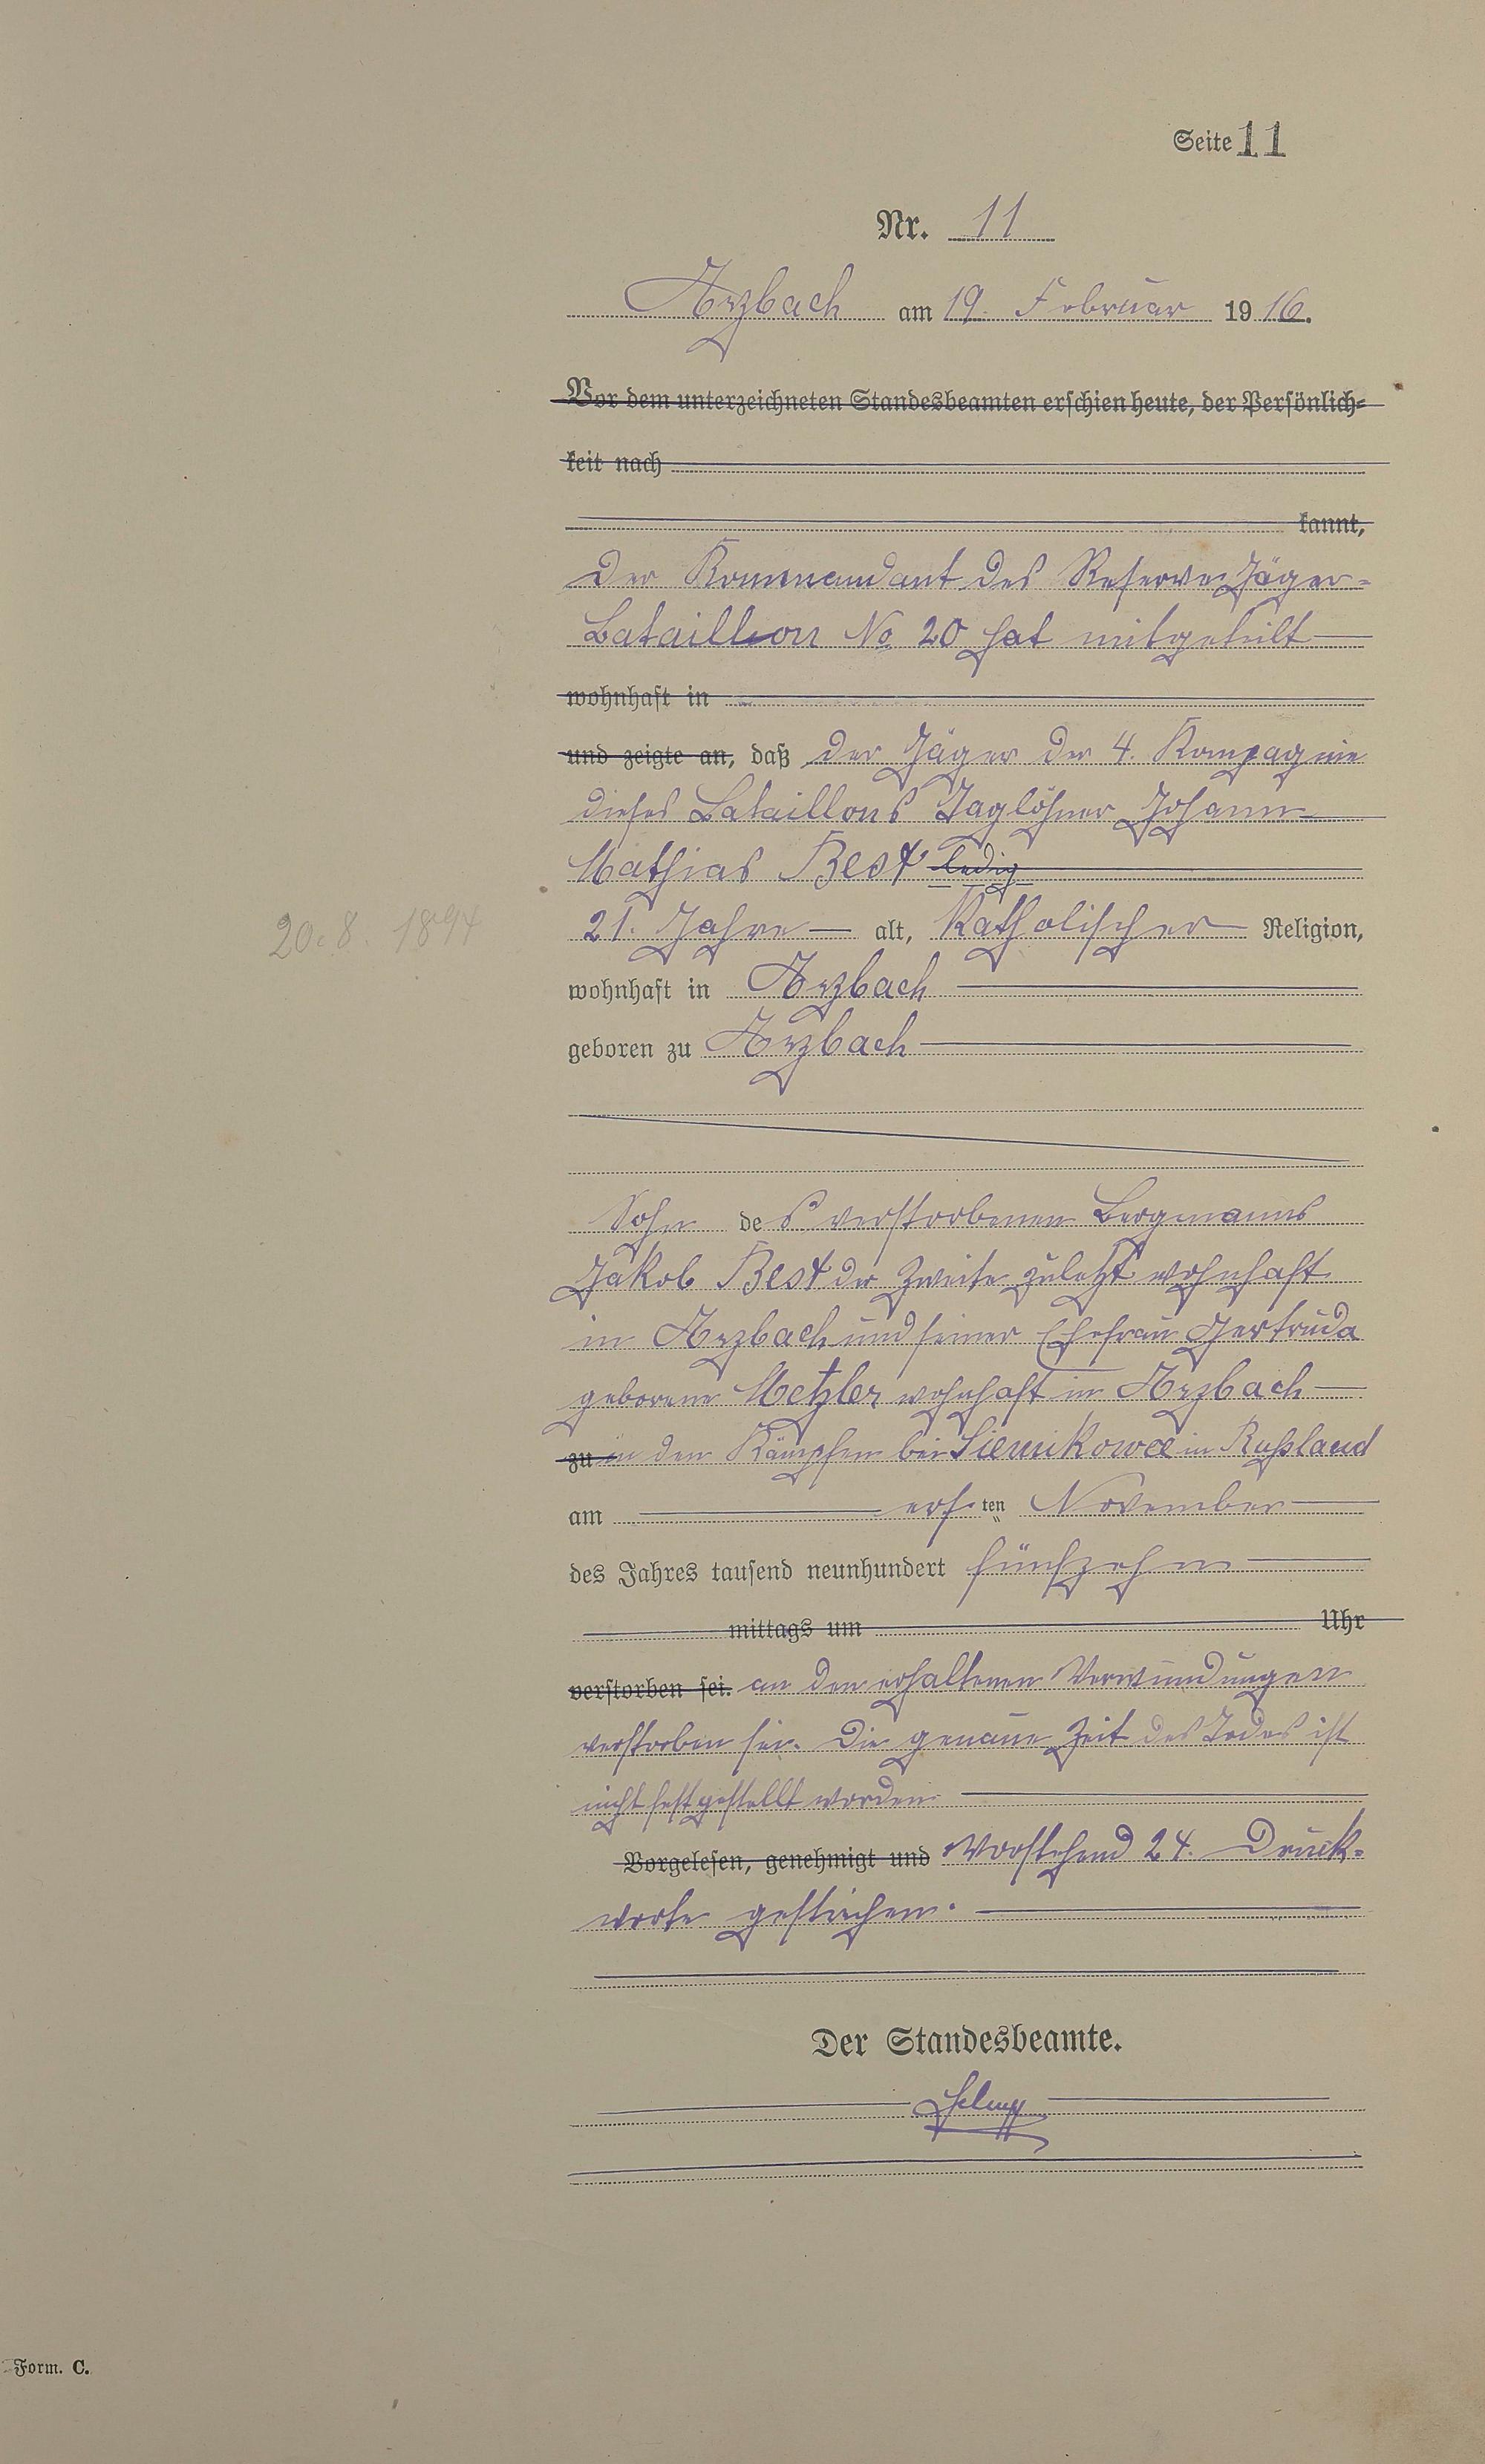 Seite 11
Nr. 11
Arzbach am 19. Februar 1916.
Vor dem unterzeichneten Standesbeamten erschien heute, der Persönlich-
keit nach
kannt,
Der Kommandant des Reserve Jäger-
Bataillon No 20 hat mitgeteilt
wohnhaft in
und zeigte an, daß der Jäger der 4. Kompagnie
dieses Bataillons Taglöhner Johann
Mathias Best ledig
20.8.1894
21. Jahre alt, Katholischer Religion,
wohnhaft in Arzbach
geboren zu Arzbach
Sohn des verstorbenen Bergmanns
Jakob Best der Zweite zuletzt wohnhaft
in Arzbach und seiner Ehefrau Gertruda
geborene Metzler wohnhaft in Arzbach
zu in den Kämpfen bei Siemikowce in Rußland
am ersten November
des Jahres tausend neunhundert fünfzehn
mittags um Uhr
verstorben sei. an den erhaltenen Verwundungen
verstorben sei. Die genaue Zeit des Todes ist
nicht festgestellt worden
Vorgelesen, genehmigt und Vorstehend 24. Druck-
worte gestrichen.
Der Standesbeamte.
Form. C.